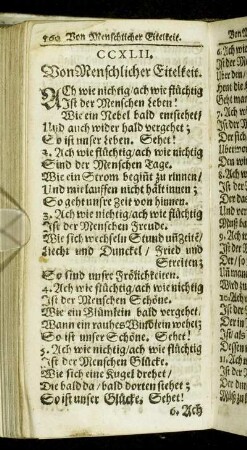 560 Von Menschlicher Eitelkeit.
CCXLII.
Von Menschlicher Eitelkeit.
ACh wie nichtig/ach wie flüchtig
Ist der Menschen Leben!
Wie ein Nebel bald entstehet/
Und auch wider bald vergehet;
So ist unser Leben. Sehet!
2. Ach wie flüchtig/ach wie nichtig
Sind der Menschen Tage.
Wie ein Strom begiñt zu rinnen/
Und mit lauffen nicht hält innen;
So geht unsre Zeit von hinnen.
3. Ach wie nichtig/ach wie flüchtig
Ist der Menschen Freude.
Wie sich wechseln Stund uñ Zeitẽ/
Liecht und Dunckel/ Fried und
Streiten;
So sind unsre Frölichkeiten.
4. Ach wie flüchtig/ach wie nichtig
Ist der Menschen Schöne.
Wie ein Blümlein bald vergehet.
Wann ein rauhes Windlein wehet;
So ist unser Schöne. Sehet!
5. Ach wie nichtig/ach wie flüchtig
Ist der Menschen Glücke.
Wie sich eine Kugel drehet/
Die bald da/ bald dorten stehet;
So ist unser Glücke. Sehet!
6. Ach